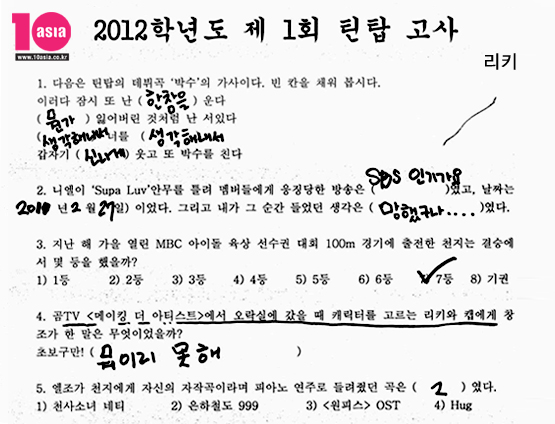 10asia
www.10asia.co.kr
2012학년도 제 1회 틴탑 고사
리키
1. 다음은 틴탑의 데뷔곡 '박수'의 가사이다. 빈 칸을 채워 봅시다.
이러다 잠시 또 난 ( 한참을 ) 운다
( 뭔가 ) 잃어버린 것처럼 난 서있다
( 생각해내써 너를 ( 생각해내서
갑자기 ( 신나게 ) 웃고 또 박수를 친다
2. 니엘이 'Supa Luv'안무를 틀려 멤버들에게 응징당한 방송은 ( SBS 인기가요 )였고, 날짜는
2010 년 2 월 27일) 이었다. 그리고 내가 그 순간 들었던 생각은 ( 망했구나.... )였다.
3. 지난 해 가을 열린 MBC 아이돌 육상 선수권 대회 100m 경기에 출전한 천지는 결승에
서 몇 등을 했을까?
1) 1등 2) 2등 3) 3등 4) 4등 5) 5등 6) 6등 7) 7등 8) 기권
4. 곰TV <메이킹 더 아티스트>에서 오락실에 갔을 때 캐릭터를 고르는 리키와 캡에게 창
조가 한 말은 무엇이었을까?
초보구만! ( 뭐이리 못해 )
5. 엘조가 천지에게 자신의 자작곡이라며 피아노 연주로 들려줬던 곡은 ( 2 ) 였다.
1) 천사소녀 네티 2) 은하철도 999 3) <원피스> OST 4) Hug